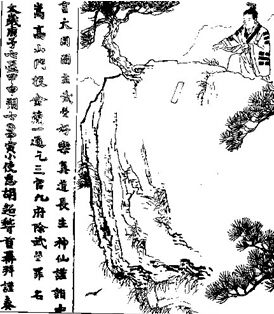 言大周圀主武曌好樂真道長生神仙謹詣中
嵩高山門投金簡一通乞三官九府除武曌罪名
太歲庚子七甲申朔七甲寅小使胡超稽首再拜謹奏